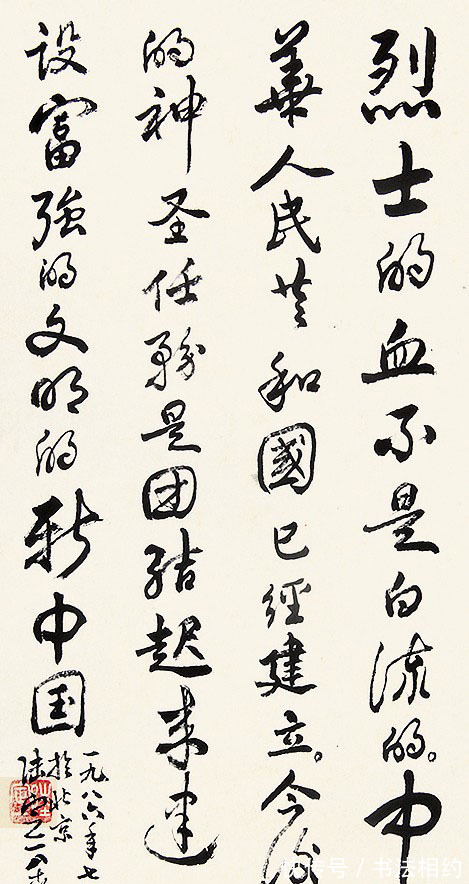 烈士的血不是白流的。中
華人民共和國已經建立。今後
的神圣任務是团结起来建
设富強的文明的新中国
一九八六年七
於北京
陆定一八十
快传号 / 书法相约